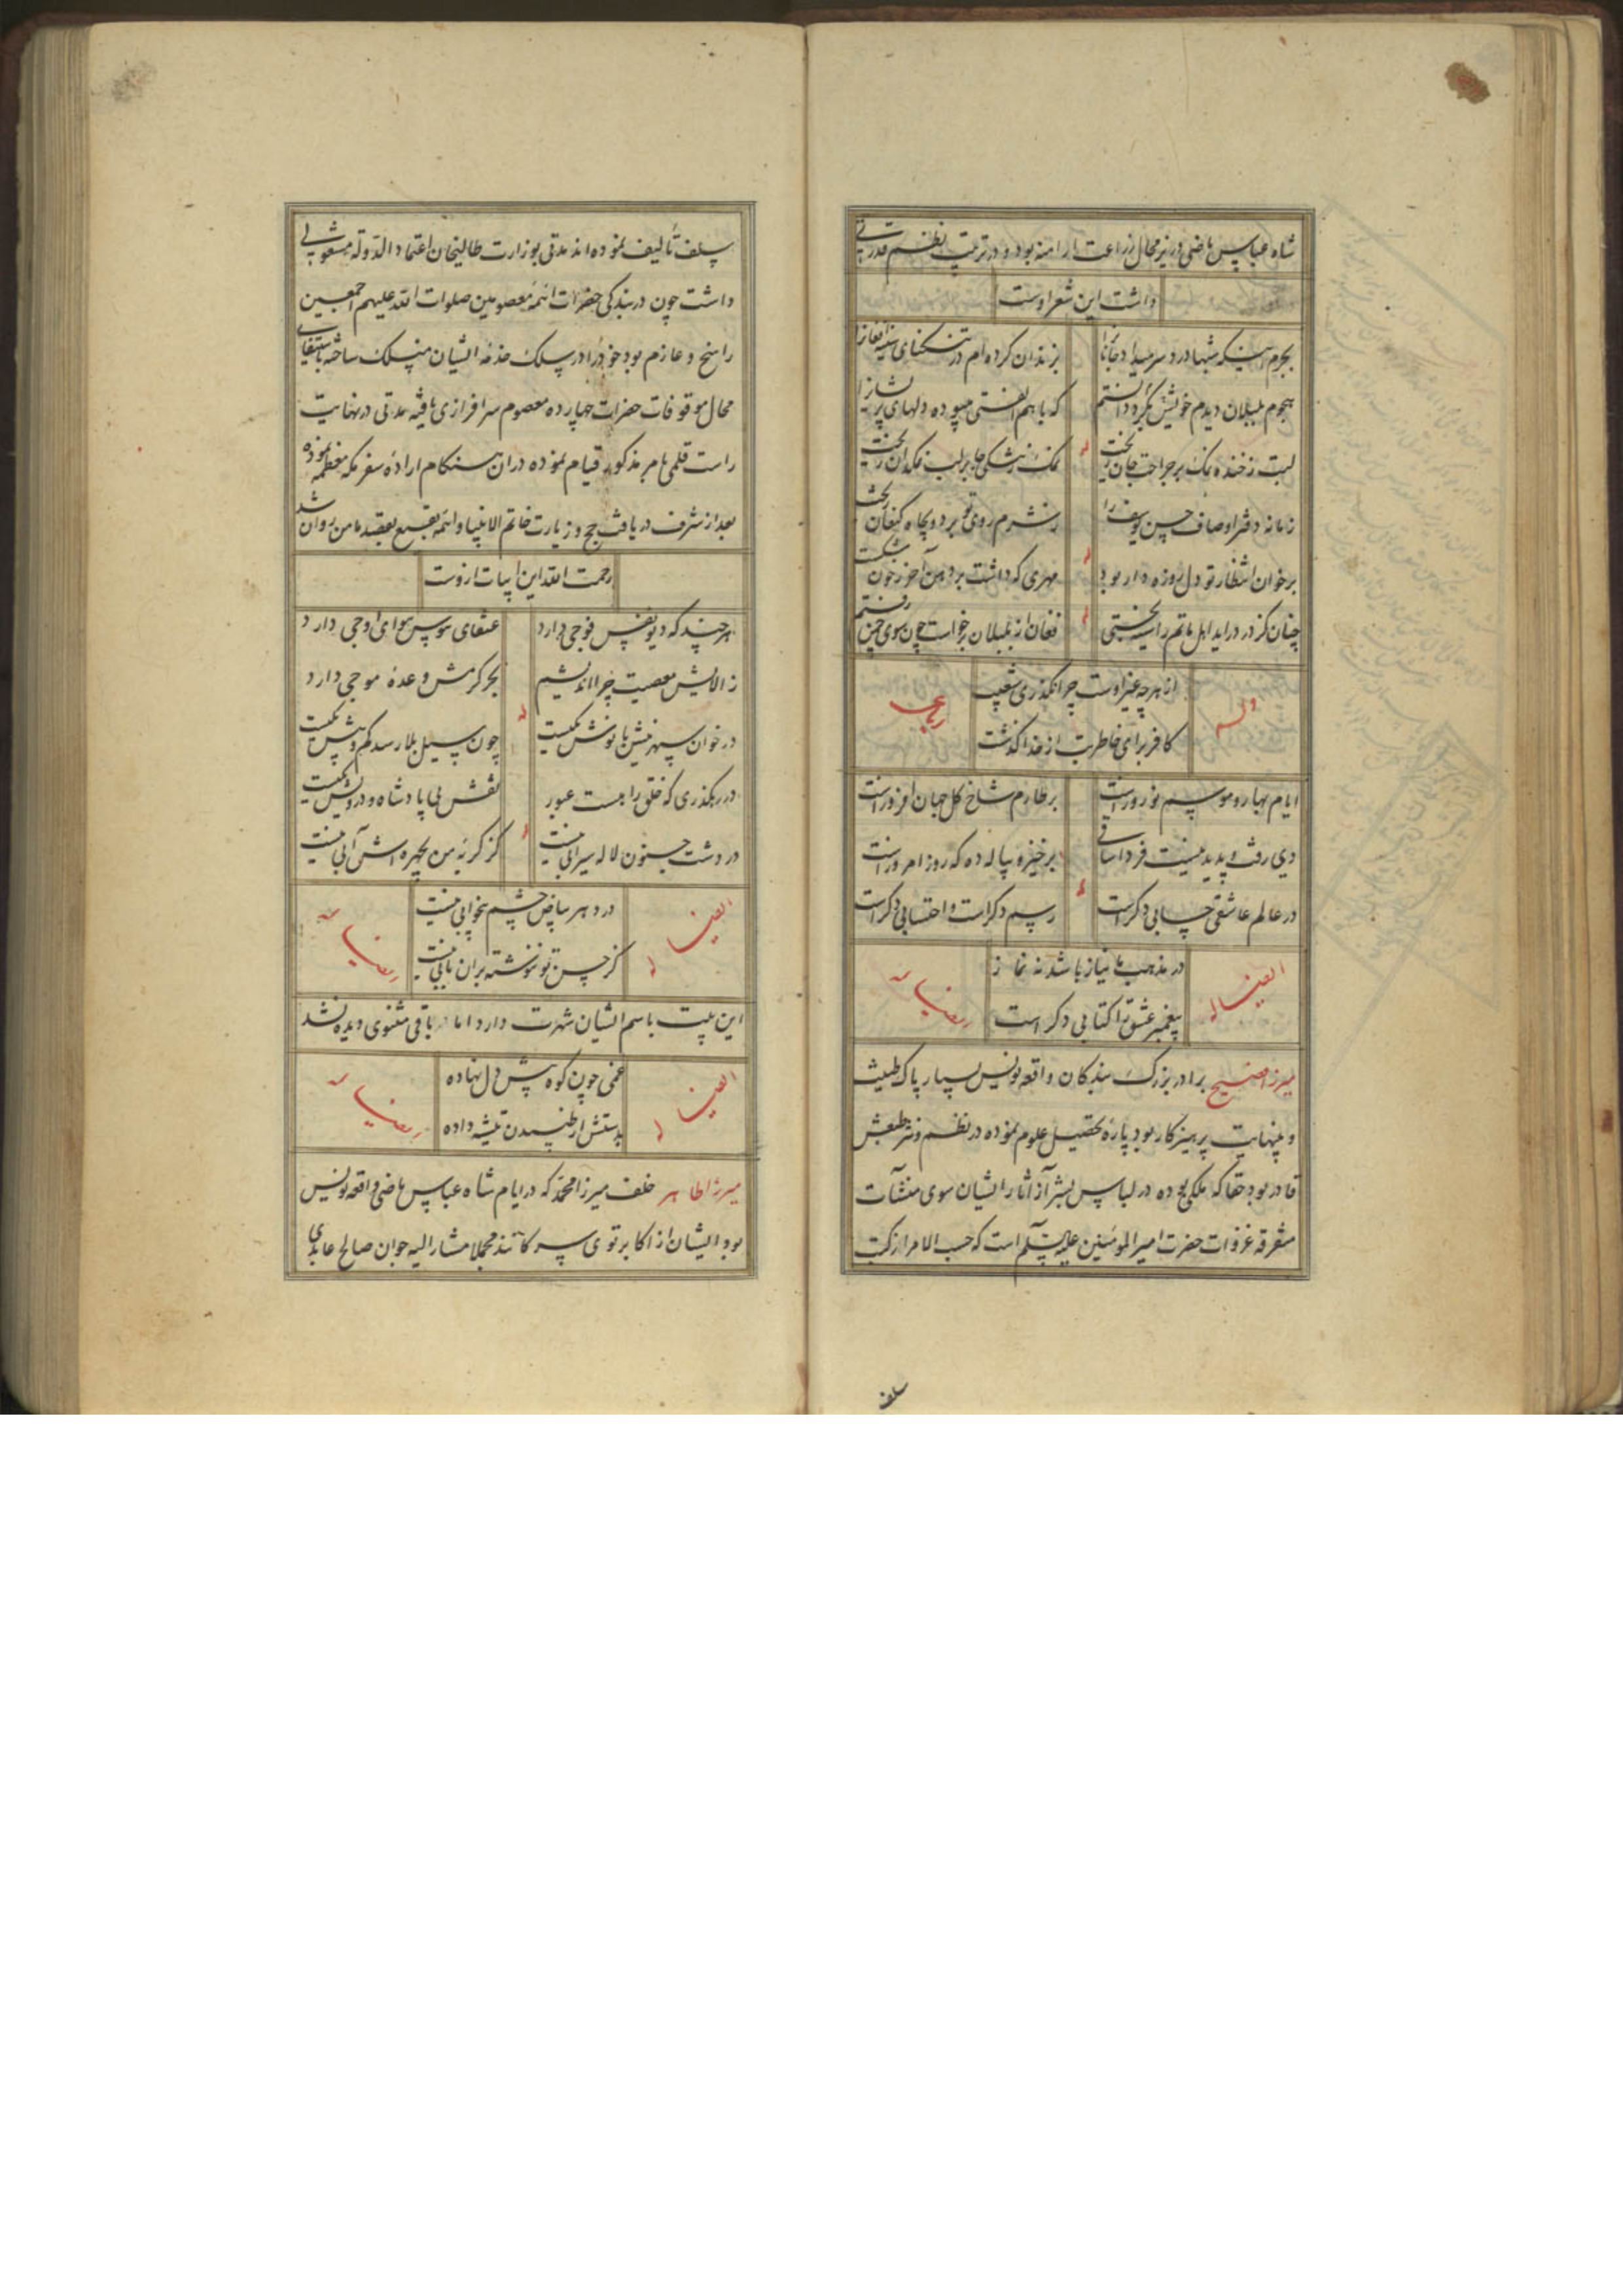 شاه عباس ماضی وزیر محال زراعت ارامنه بود و در ترتیب نظم قدرتی
داشت این شعر اوست
بجرم اینکه شبها درد سر میداد جانانرا
بزندان کرده ام در تنکنای سینه افغانرا
هجوم بلبلان دیدم خویش دانستم
که با هم الفتی میبوده دلهای پریشانرا
لبت زخنده نمک بر جراحت جان ریخت
نمک زشکی جا بر لب نمکدان ریخت
زمانه دفتر اوصاف حسن یوسف را
زشرم روی تو برد و بچاه کنعان ریخت
برخوان انتظار تو دل روزه دار بود
مهری که داشت بر دهن آخر بخون شکست
چنان کز در دراید اهل ماتم را سیه بختی
فغان از بلبلان برخواست چون سوی چمن رفتم
وله
از هرچه غیر اوست چرا نگذری شعیب
رباعی
کافر برای خاطر بت از خدا گذشت
ایام بهار و موسم نوروز است
بر طارم شاخ کل جهان افروز است
دی رفت و پدید نیست فردا ساقی
برخیز و پیاله ده که روز امروز است
در عالم عاشقی حسابی دکر است
رسم دکر است و احتسابی دکر است
ایضا له
در مذهب ما نیاز باشد نه نماز
رضیا
پیغمبر عشق را کتابی دکر است
میرزا فصیح برادر بزرک بندکان واقعه نویس بسیار پاک طینت
و بینهایت پرهیزکار بود پاره تحصیل علوم نموده در نظم و نثر طبعش
قادر بود حقا که ملکی بوده در لباس بشر از آثار ایشان سوی منشآت
متفرقه غزوات حضرت امیر المومنین علیه السلم است که حسب الامر از کتب
سلف
سلف تألیف نموده اند مدتی بوزارت طالبخان اعتماد الدوله مشغولی
داشت چون در بندکی حضرات ائمه معصومین صلوات الله علیهم اجمعین
راسخ و عازم بود خود را در سلک خدمه ایشان منسلک ساخته باستیفای
محال موقوفات حضرات چهارده معصوم سرافرازی یافته مدتی در نهایت
راست قلمی بامر مذکور قیام نموده دران هنکام اراده سفر مکه معظمه نموده
بعد از شرف دریافت حج و زیارت خاتم الانبیا و ائمه بقیع بعقبه مامن روان شد
رحمت الله این ابیات ازوست
هرچند که دیو نفس فوجی دارد
عنقای هوس هوای اوجی دارد
ز الایش معصیت چرا اندیشیم
بحر کرمش وعده موجی دارد
در خوان سپهر نیش با نوش یکیست
چون سیل بلا رسد کم و بیش یکیست
در رهگذری که خلق را هست عبور
نقش پی پادشاه و درویش یکیست
در دشت جنون لاله سیرابی نیست
کز کریه من بچهره اش آبی نیست
ایضا له
در دهر بیاض چشم بیخوابی نیست
رضیا
کز حسن تو ننوشته بران بابی نیست
این بیت باسم ایشان شهرت دارد اما باقی مثنوی دیده نشد
ایضا له
غمی چون کوه پیش دل نهاده
رضیا
بدستش از طپیدن تیشه داده
میرزا طاهر خلف میرزا محمد که در ایام شاه عباس ماضی واقعه نویس
بود ایشان از اکابر توی سرکانند مجملا مشار الیه جوان صالح عابدی